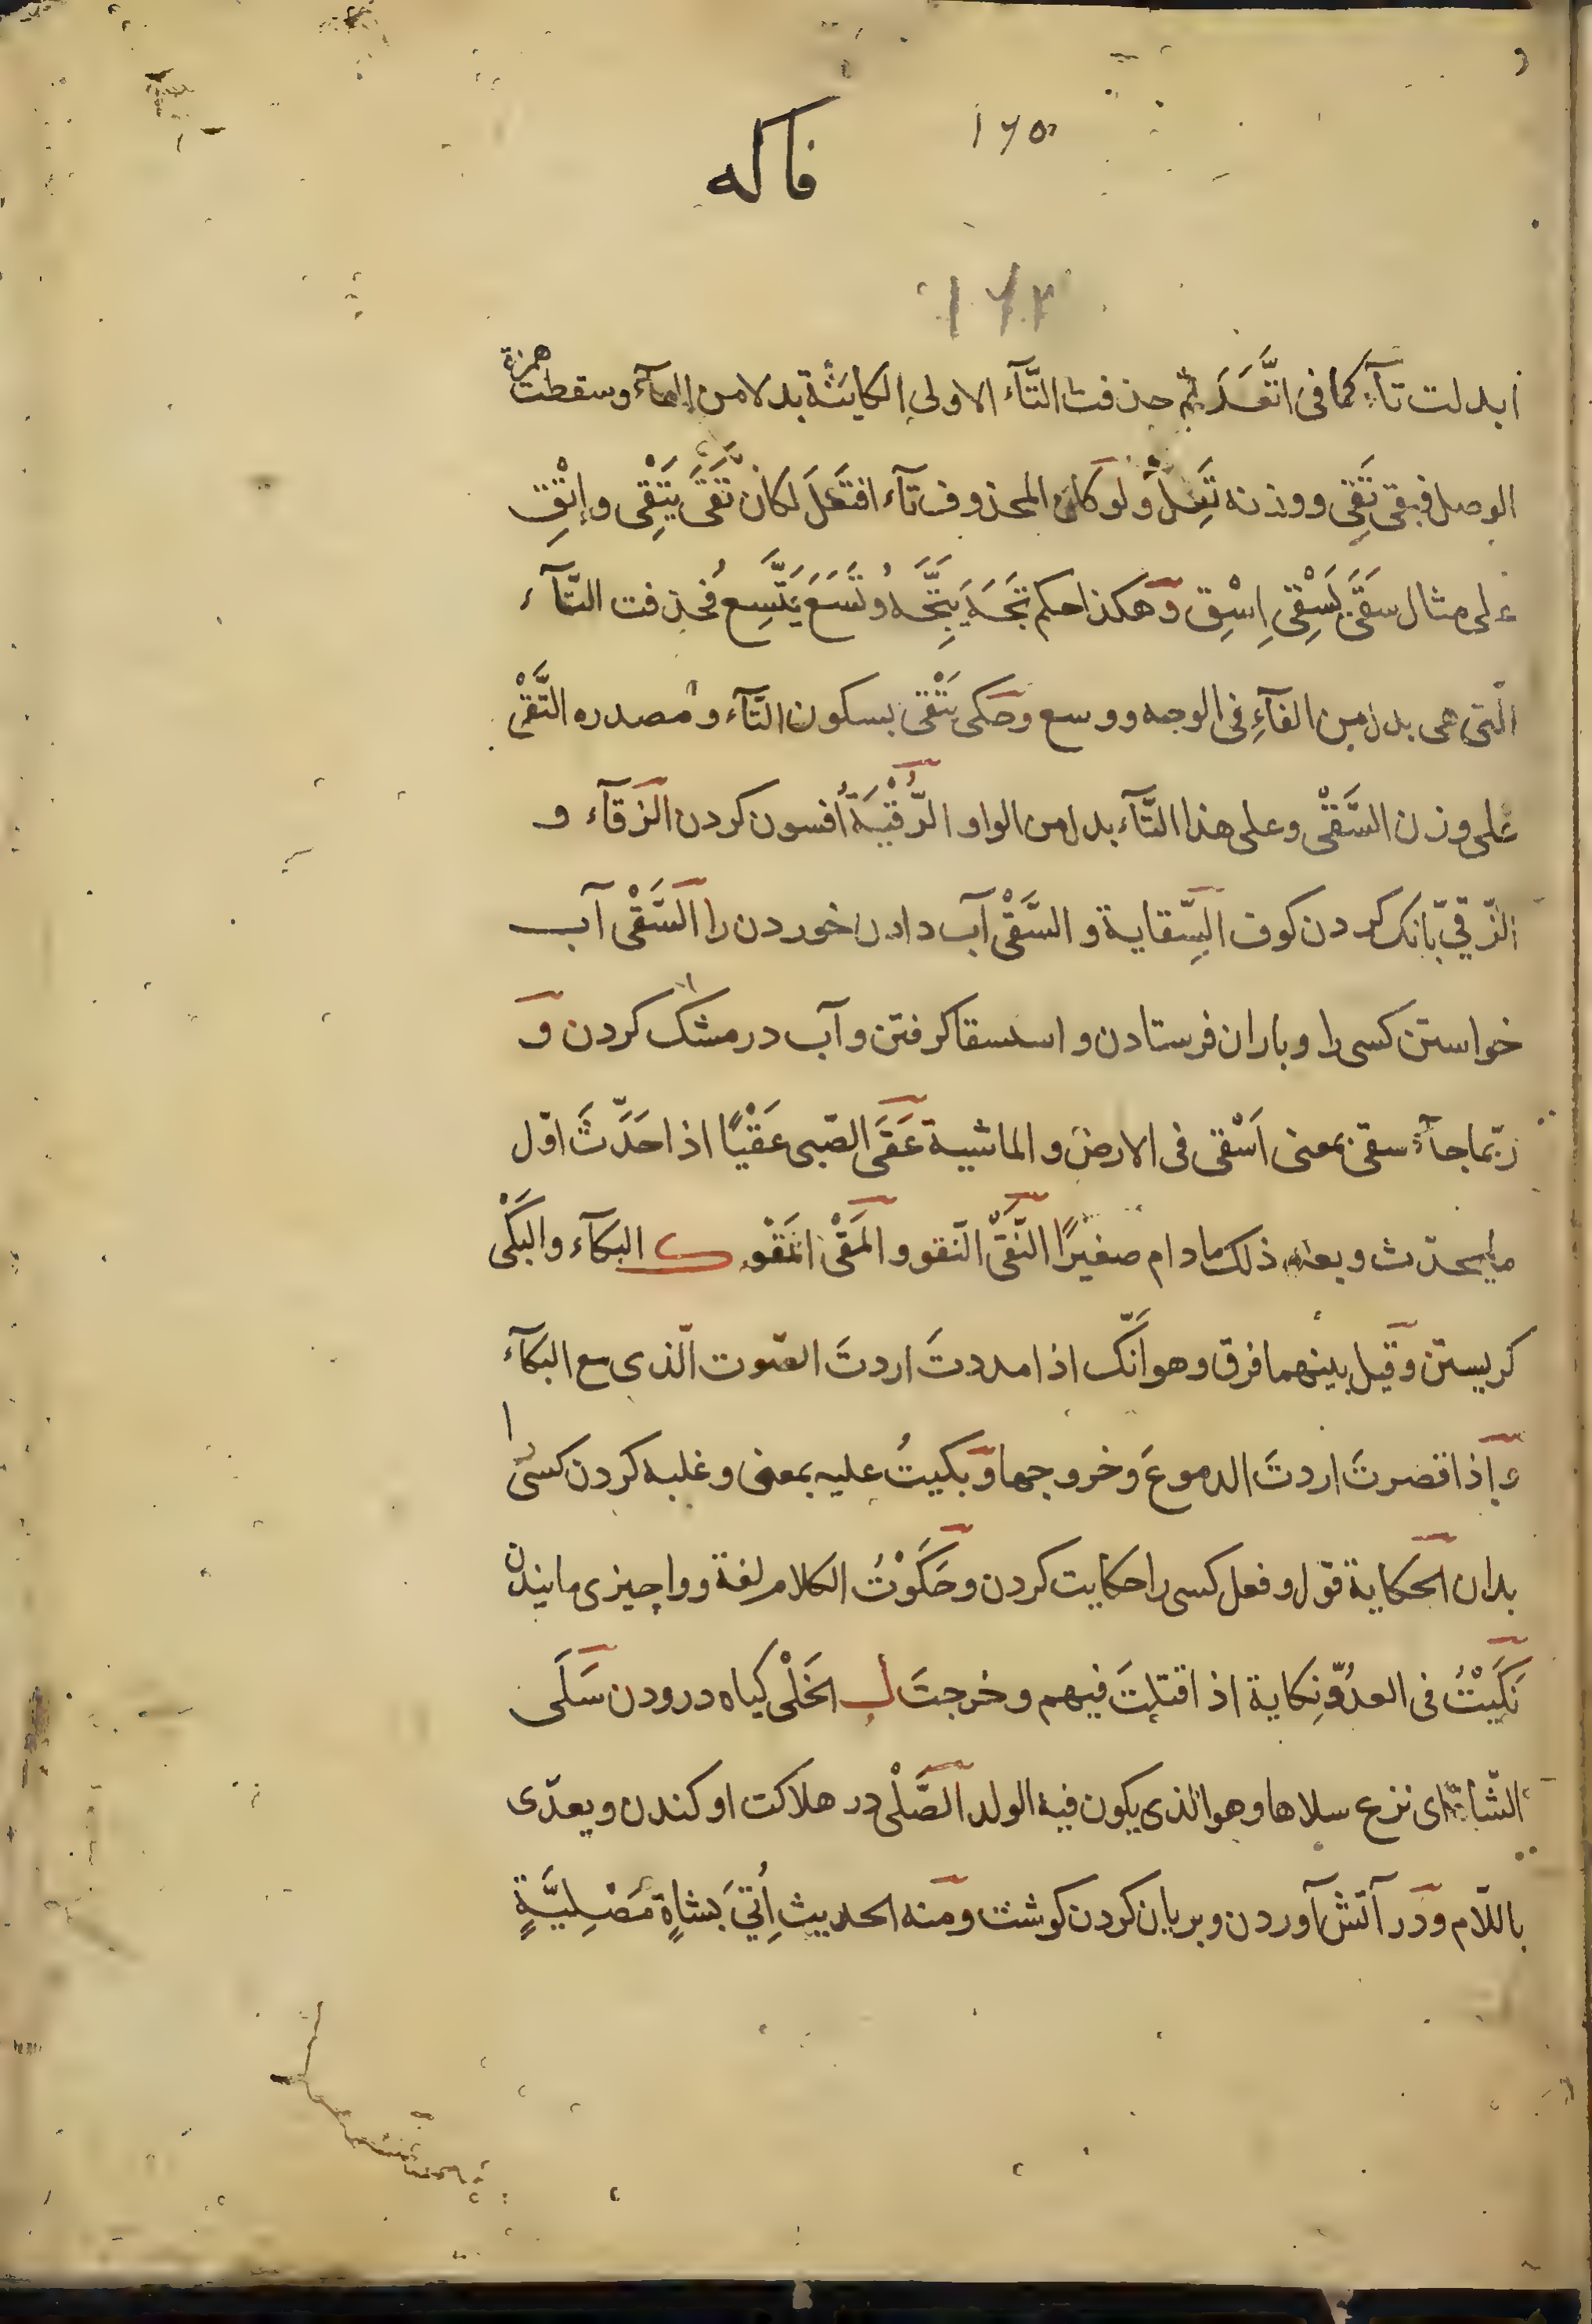 ۱۷۵
فاكه
۱۶۲
ابدلت تآء كما فى اتَّعَدَ ثم حذفت التَّآء الاولى الكاينَة بدلا من الفآء وسقطت همزة
الوصل فبقى تَقِى ووزنه تَعِلْ ولو كان المحذوف تآء افتَعَلَ لكان تَقَى يَتْقِى واِتْقِ
على مثال سَقَى يَسْقِى اِسْقِ وهكذا حكم تَجَهَ يَتَّجَهُ وتَسَعَ يَتَّسِعُ فحذفت التَّآء
الّتى هى بدل من الفآءِ فى الوجه ووسع وحكى تَتْقى بسكون التّآء ومصدره التَّقْى
على وزن السَّقْى وعلى هذا التَّآء بدل من الواو الرُّقْيَةُ افسون كردن الزقآء و
الزّقىّ بانك كردن كوف السِّقاية والسَّقْى آب دادن خوردن را السَّقْى آب
خواستن كسى را وباران فرستادن و استسقا كرفتن وآب در مشك كردن و
ربّما جآء سقى بمعنى اَسْقى فى الارض والماشية عَقَى الصّبى عَقْيًا اذا حَدَّثَ اوّل
ما يحدّث وبعد ذلك ما دام صغيرًا النَّقْى النّقو والمَقْى المَقْو ك البكآء والبَكْى
كريستن وقيل بينهما فرق وهو انَّك اذا مددتَ اردتَ الصّوت الّذى مع البكآء
واذا قصرتَ اردتَ الدموعَ وخروجها وبكيتُ عليه بمعنى وغلبه كردن كسى را
بدان الحكاية قول وفعل كسى را حكايت كردن وحَكَوْتُ الكلام لغة ووا چيزى مانيدن
نَكَيْتُ فى العدُوّ نِكاية اذا قتلتَ فيهم وجرحتَ ل الخَلْى كياه درودن سَلَى
الشّاة اى نزع سلاها وهو الذى يكون فيه الولد الصَّلْى در هلاكت او كندن ويعدّى
باللّام ودر آتش آوردن وبريان كردن كوشت ومنه الحديث اُتِىَ بشاةٍ مَصْلِيَّةٍ